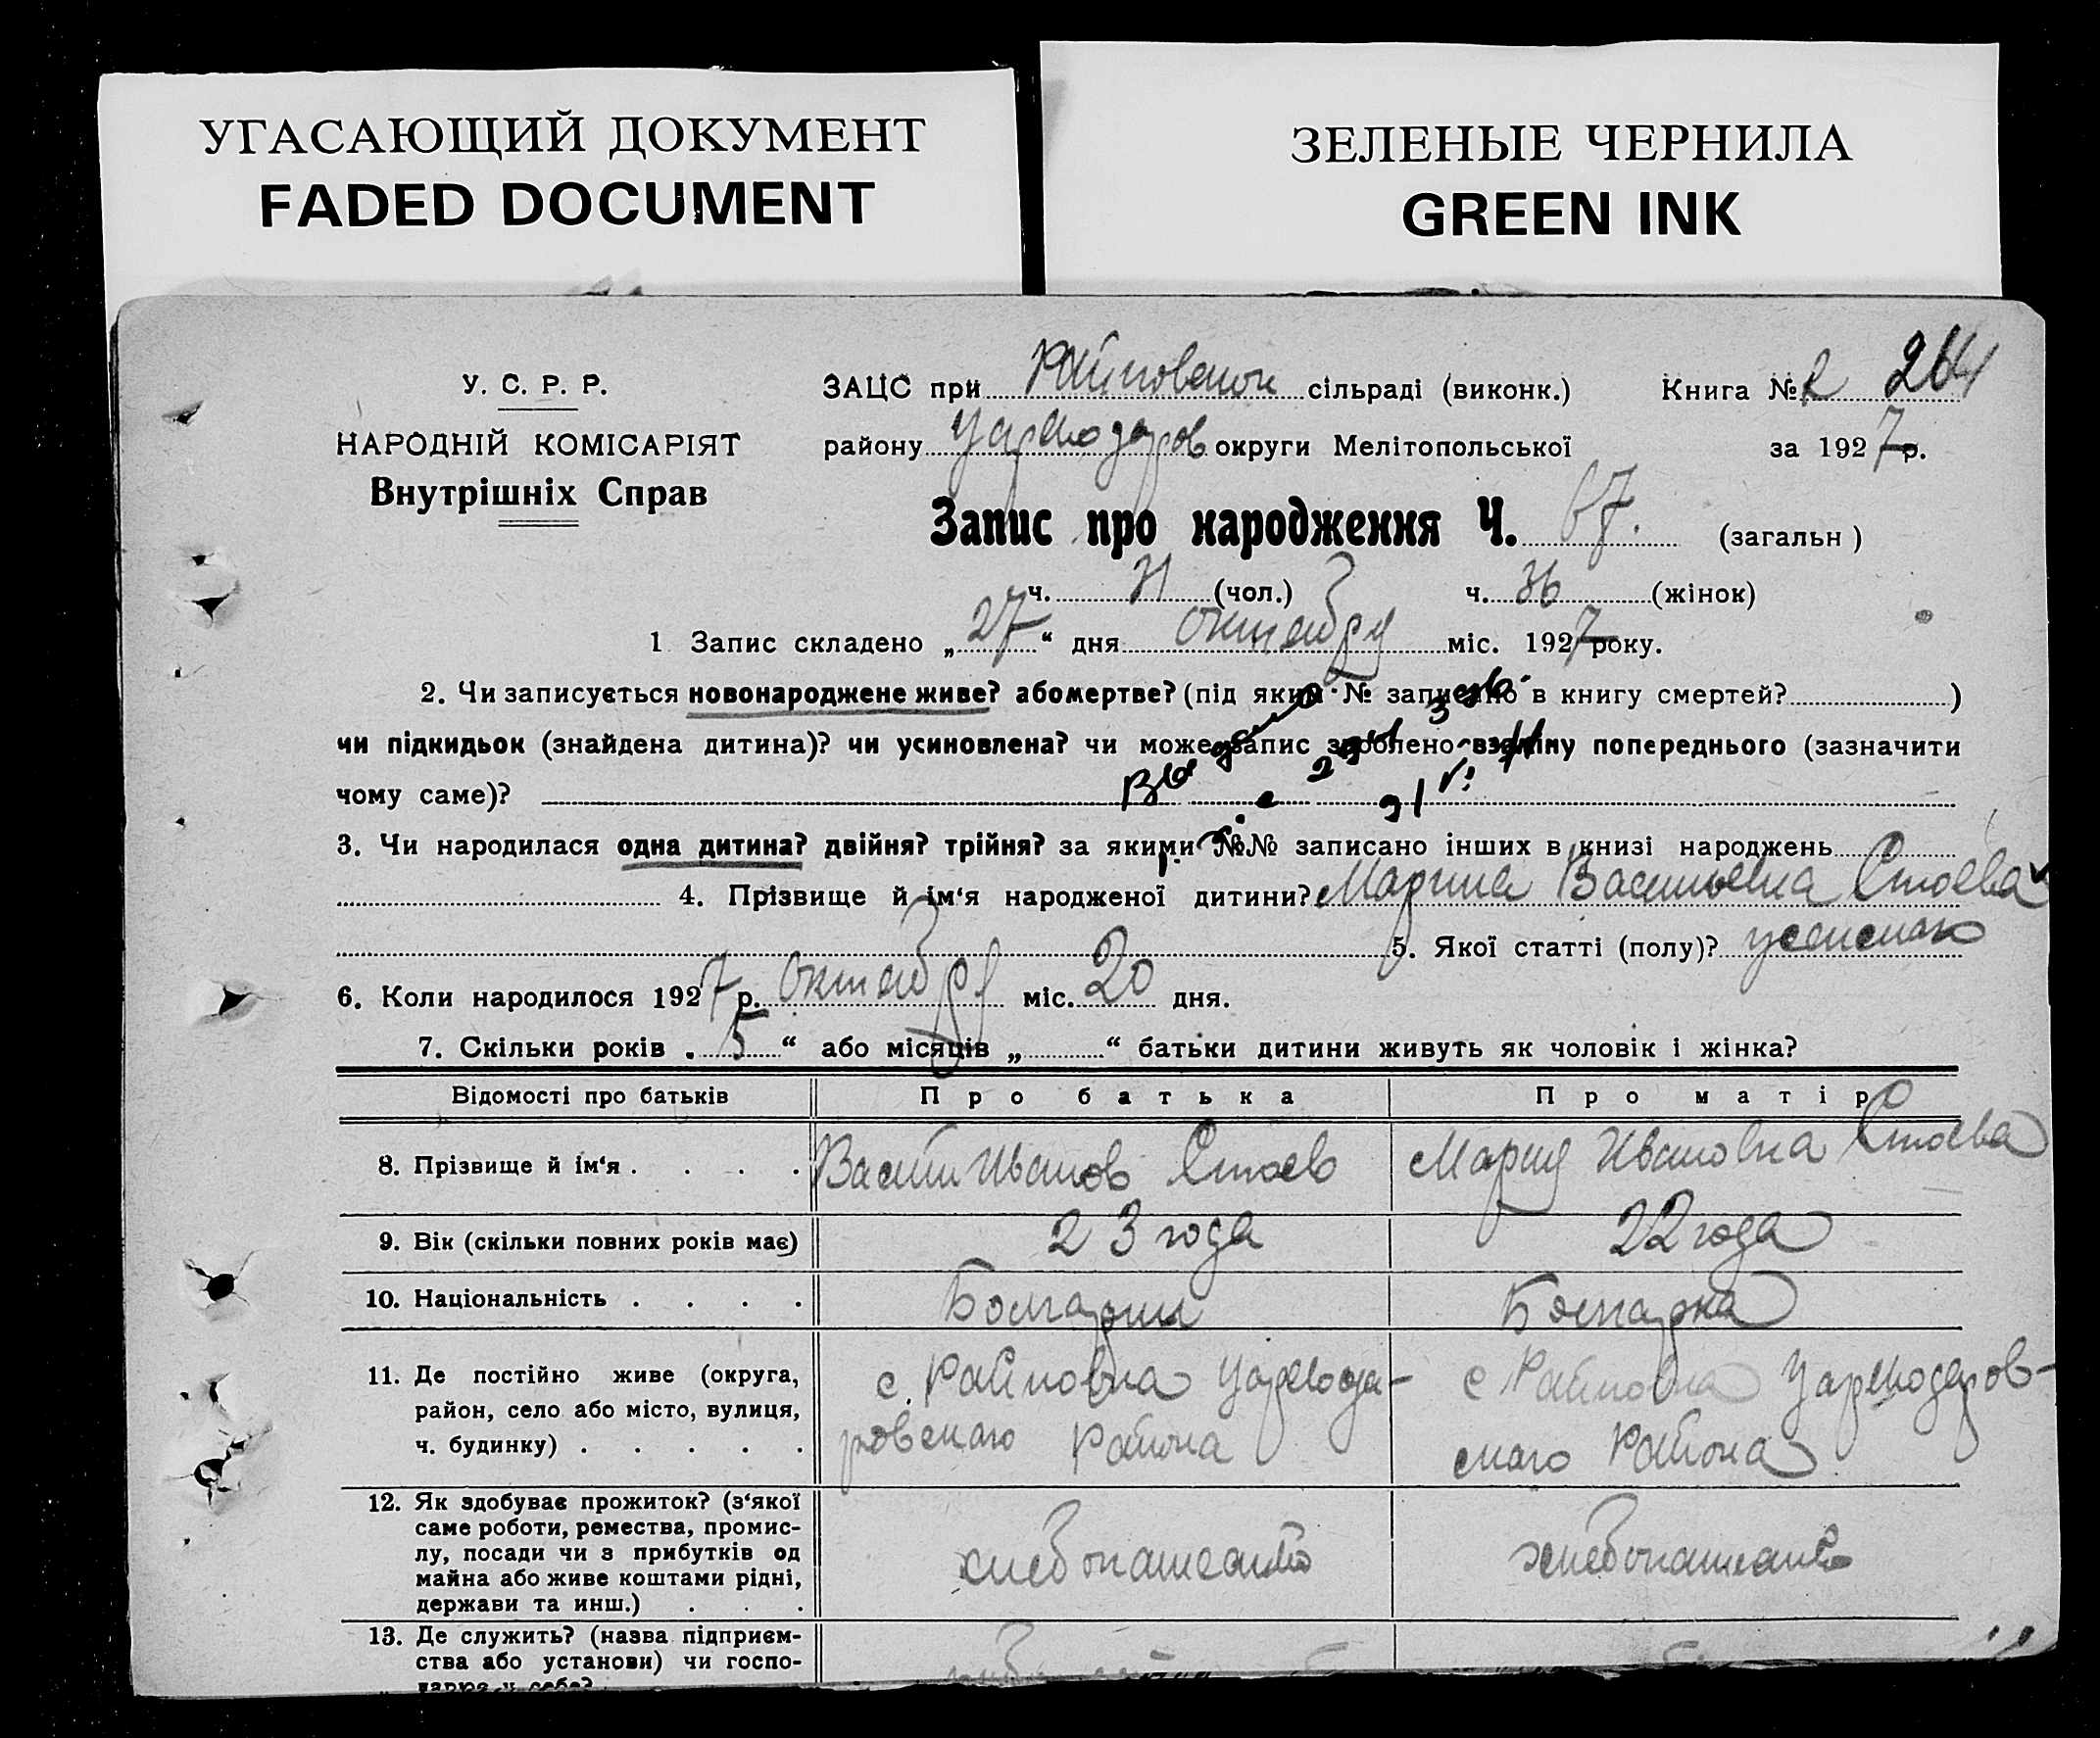 УГАСАЮЩИЙ ДОКУМЕНТ
FADED DOCUMENT
ЗЕЛЕНЫЕ ЧЕРНИЛА
GREEN INK
У. С. Р. Р.
НАРОДНІЙ КОМІСАРІЯТ
Внутрішніх Справ
ЗАЦС при Райновской сільраді (виконк.) Книга № 2 264
району Цареводаров округи Мелітопольської за 1927 р.
Запис про народження Ч. 67. (загальн)
ч. 31 (чол.) ч. 36 (жінок)
1 Запис складено „27“ дня октября міс. 1927 року.
2. Чи записується новонароджене живе? або мертве? (під яким № записано в книгу смертей? )
чи підкидьок (знайдена дитина)? чи усиновлена? чи може запис зроблено взаміну попереднього (зазначити
чому саме)?
3. Чи народилася одна дитина? двійня? трійня? за якими №№ записано інших в книзі народжень
4. Прізвище й ім‘я народженої дитини? Марина Васильевна Стоева
5. Якої статті (полу)? женскаго
6. Коли народилося 1927 р. октября міс. 20 дня.
7. Скільки років „5“ або місяців „ “ батьки дитини живуть як чоловік і жінка?
Відомості про батьків Про батька Про матір
8. Прізвище й ім‘я . . . . Васили Иванов Стоев Мария Ивановна Стоева
9. Вік (скільки повних років має) 23 года 22 года
10. Національність . . . . Болгарин Болгарка
11. Де постійно живе (округа,
район, село або місто, вулиця,
ч. будинку) . . . . .
с. Райновка Царевода-
ровскаго Района
с Райновка Цареводаров-
скаго Района
12. Як здобуває прожиток? (з‘якої
саме роботи, ремества, промис-
лу, посади чи з прибутків од
майна або живе коштами рідні,
держави та инш.) . . .
хлебопашеством
хлебопашеством
13. Де служить? (назва підприєм-
ства або установи) чи госпо-
дарює у себе?